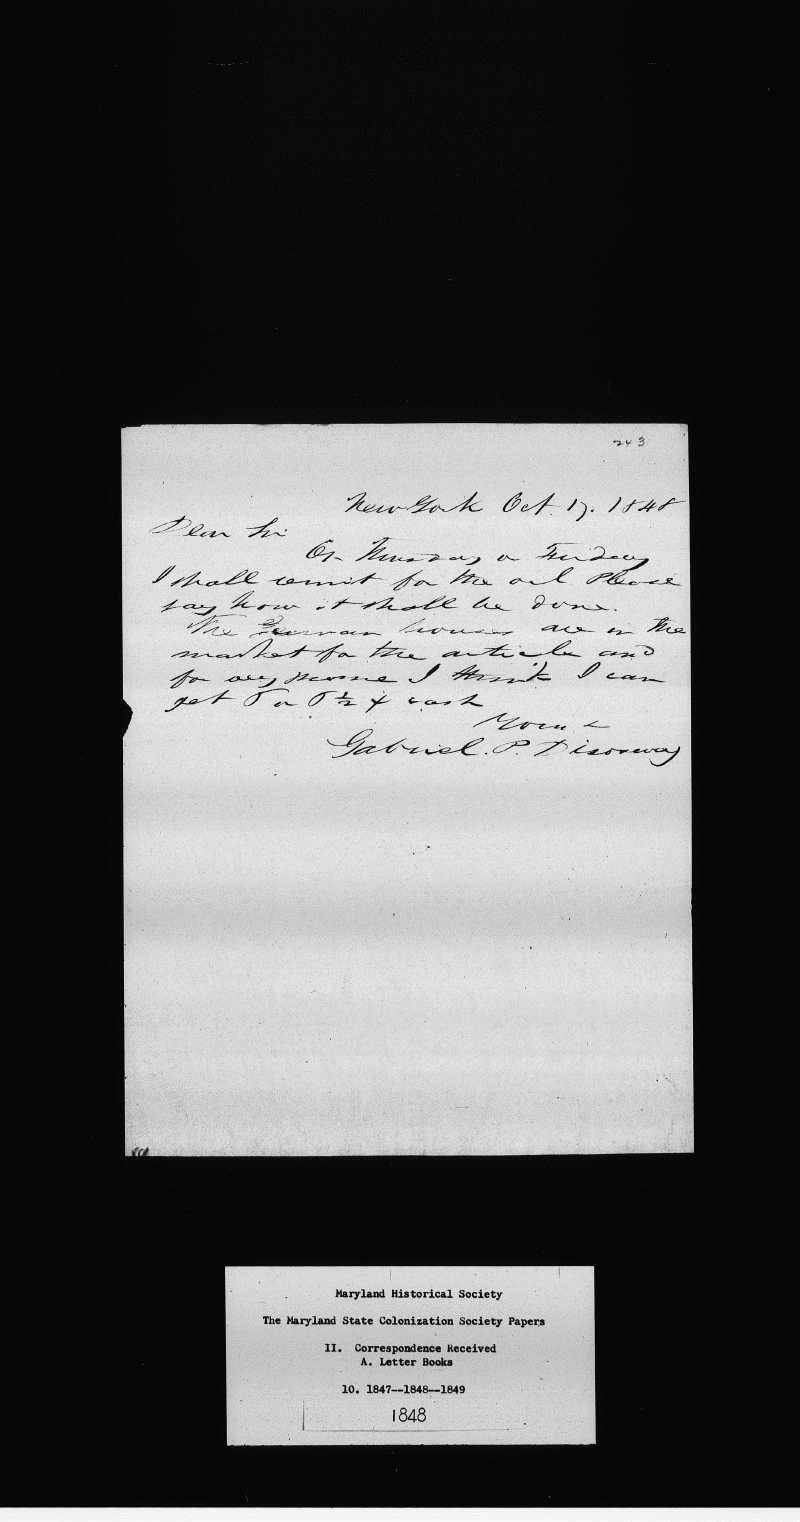 243
New York Oct. 17. 1848
Dear Sir
On Thursday or Friday
I shall remit for the oil Please
say how it shall be done.
The German houses are in the
market for the article and
for any more I think I can
get 5 or 5 1/2 cash
Yours
Gabriel. P. Disosway
Maryland Historical Society
The Maryland State Colonization Society Papers
II. Correspondence Received
A. Letter Books
10. 1847--1848--1849
1848